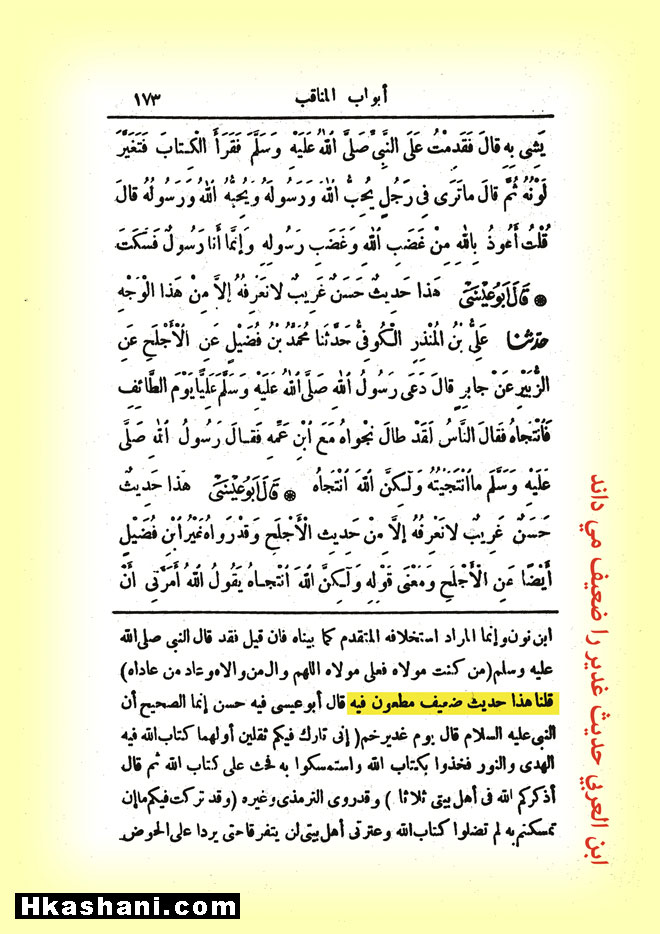 أبواب المناقب ١٧٣
يَشِى بِهِ قَالَ فَقَدِمْتُ عَلَى النَّبِىِّ صَلَّى ٱللهُ عَلَيْهِ وَسَلَّمَ فَقَرَأَ الْكِتَابَ فَتَغَيَّرَ
لَوْنُهُ ثُمَّ قَالَ مَا تَرَى فِى رَجُلٍ يُحِبُّ ٱللهَ وَرَسُولَهُ وَيُحِبُّهُ ٱللهُ وَرَسُولُهُ قَالَ
قُلْتُ أَعُوذُ بِاللهِ مِنْ غَضَبِ ٱللهِ وَغَضَبِ رَسُولِهِ وَإِنَّمَا أَنَا رَسُولٌ فَسَكَتَ
* قَالَ أَبُو عِيْسَى هَذَا حَدِيثٌ حَسَنٌ غَرِيبٌ لَا نَعْرِفُهُ إِلَّا مِنْ هَذَا الْوَجْهِ
حَدَّثَنَا عَلِىُّ بْنُ الْمُنْذِرِ الْكُوفِىُّ حَدَّثَنَا مُحَمَّدُ بْنُ فُضَيْلٍ عَنِ الْأَجْلَحِ عَنْ
الزُّبَيْرِ عَنْ جَابِرٍ قَالَ دَعَى رَسُولُ ٱللهِ صَلَّى ٱللهُ عَلَيْهِ وَسَلَّمَ عَلِيًّا يَوْمَ الطَّائِفِ
فَانْتَجَاهُ فَقَالَ النَّاسُ لَقَدْ طَالَ نَجْوَاهُ مَعَ ابْنِ عَمِّهِ فَقَالَ رَسُولُ ٱللهِ صَلَّى
عَلَيْهِ وَسَلَّمَ مَا انْتَجَيْتُهُ وَلَكِنَّ ٱللهَ انْتَجَاهُ * قَالَ أَبُو عِيْسَى هَذَا حَدِيثٌ
حَسَنٌ غَرِيبٌ لَا نَعْرِفُهُ إِلَّا مِنْ حَدِيثِ الْأَجْلَحِ وَقَدْ رَوَاهُ غَيْرُ ابْنِ فُضَيْلٍ
أَيْضًا عَنِ الْأَجْلَحِ وَمَعْنَى قَوْلِهِ وَلَكِنَّ ٱللهَ انْتَجَاهُ يَقُولُ ٱللهُ أَمَرَنِى أَنْ
ابن نون وإنما المراد استخلافه المتقدم كما بيناه فان قيل فقد قال النبى صلى الله
عليه وسلم (من كنت مولاه فعلى مولاه اللهم وال من والاه وعاد من عاداه)
قلنا هذا حديث ضعيف مطعون فيه قال أبو عيسى فيه حسن إنما الصحيح أن
النبى عليه السلام قال يوم غدير خم (إنى تارك فيكم ثقلين أولهما كتاب الله فيه
الهدى والنور فخذوا بكتاب الله واستمسكوا به فحث على كتاب الله ثم قال
أذكركم الله فى أهل بيتى ثلاثا) وقد روى الترمذى وغيره (وقد تركت فيكم ما إن
تمسكتم به لم تضلوا كتاب الله وعترتى أهل بيتى لن يتفرقا حتى يردا على الحوض
ابن العربي حديث غدير را ضعيف مي داند
Hkashani.com